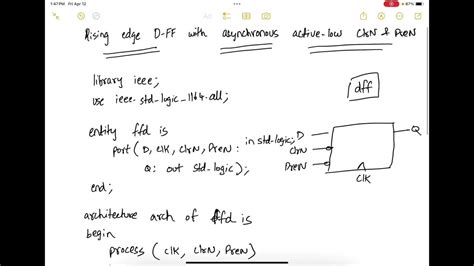 1:47 PM Fri Apr 12
67%
Rising edge D-FF with asynchronous active-low ClrN & PreN
library ieee;
use ieee.std-logic-1164.all;
dff
entity ffd is
port (D, Clk, ClrN, PreN: in std-logic;
Q: out std-logic);
end;
D
ClrN
PreN
Q
Clk
architecture arch of ffd is
begin
process (Clk, ClrN, PreN)